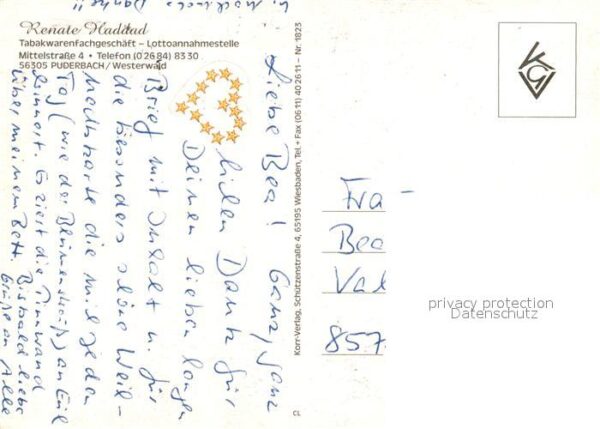 Renate Haddad
Tabakwarenfachgeschäft – Lottoannahmestelle
Mittelstraße 4 • Telefon (0 26 84) 83 30
56305 PUDERBACH / Westerwald
Liebe Bea! Ganz, ganz
lieben Dank für
Deinen lieben langen
Brief mit Inhalt u. für
die besonders schöne Weih-
nachtskarte die mich jeden
Tag (wie der Blumenstrauß) an Euch
erinnert. Er ziert die Pinnwand
über meinem Bett. Bis bald liebe
Grüße an Alle
Korr-Verlag, Schützenstraße 4, 65195 Wiesbaden, Tel. + Fax (06 11) 40 26 11 – Nr. 1823
CL
KV
Fra
Bea
Val
857
privacy protection
Datenschutz